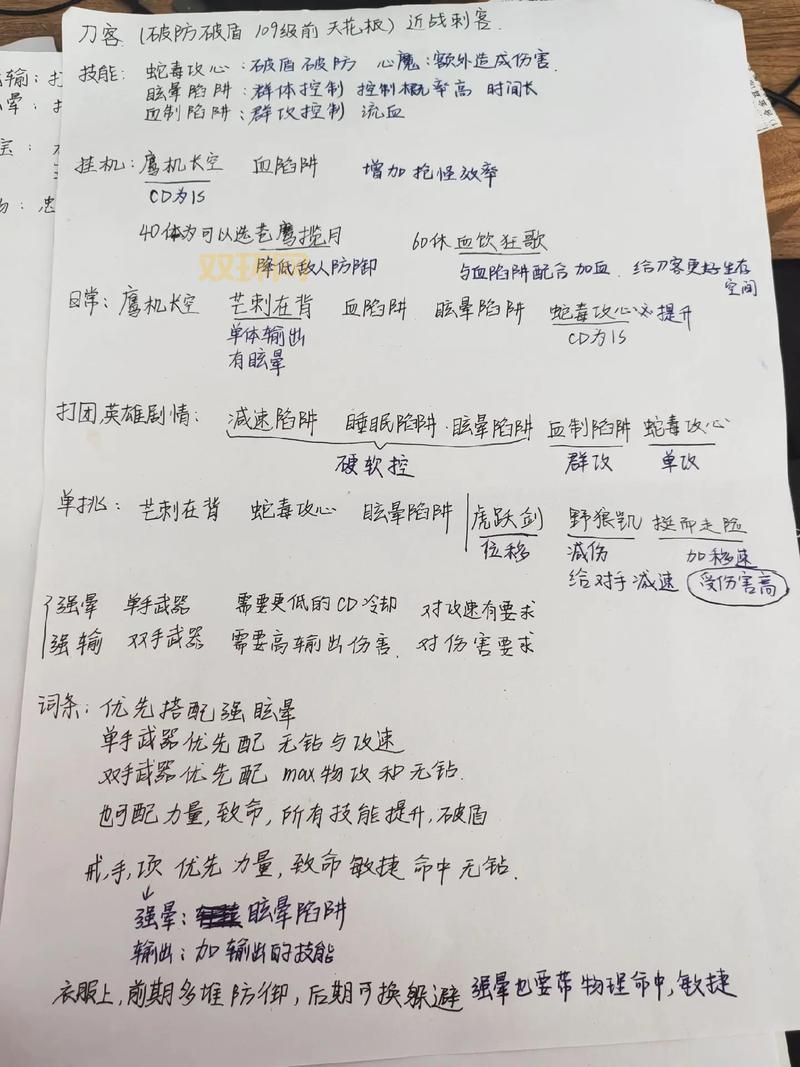 刀客（破防破盾 109级前 天花板）近战刺客.
技能：蛇毒攻心：破盾破防 心魔：额外造成伤害.
眩晕陷阱：群体控制 控制概率高 时间长
血制陷阱：群攻控制 流血
挂机：鹰机长空 血陷阱 增加抢怪效率
CD为1S
40体为可以选苍鹰揽月 60体血饮狂歌
降低敌人防御 与血陷阱配合加血. 给刀客更好生存
空间
日常：鹰机长空 芒刺在背 血陷阱 眩晕陷阱 蛇毒攻心必提升
单体输出 CD为1S
有眩晕
打团,英雄剧情：减速陷阱 睡眠陷阱·眩晕陷阱 血制陷阱 蛇毒攻心
硬软控 群攻 单攻
单挑：芒刺在背 蛇毒攻心 眩晕陷阱 虎跃剑 野狼凯 挺而走险
位移 减伤 加移速
给对手减速 受伤害高
强晕 单手武器 需要更低的CD冷却 对攻速有要求
强输 双手武器 需要高输出伤害. 对伤害要求
词条：优先搭配强眩晕
单手武器优先配 无钻与攻速
双手武器优先配 max物攻和无钻.
也可配力量,致命,所有技能提升,破盾
戒,手,项 优先力量,致命敏捷 命中无钻.
强晕： 眩晕陷阱
输出：加输出的技能
衣服上,前期多堆防御,后期可换躲避 强晕也要带物理命中,敏捷
输：打
晕：
宝：
物：忠
双琪网